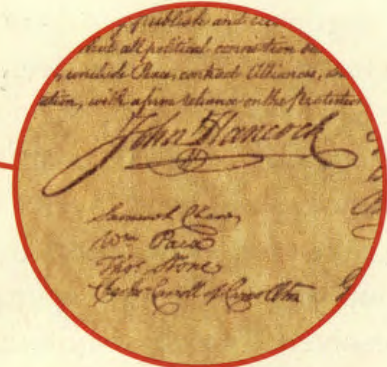 publish and
that all political connection be
conclude Peace, contract Alliances, an
ation, with a firm reliance on the Protection
John Hancock
Samuel Chase
Wm Paca
Thos Stone
Charles Carroll of Carrollton